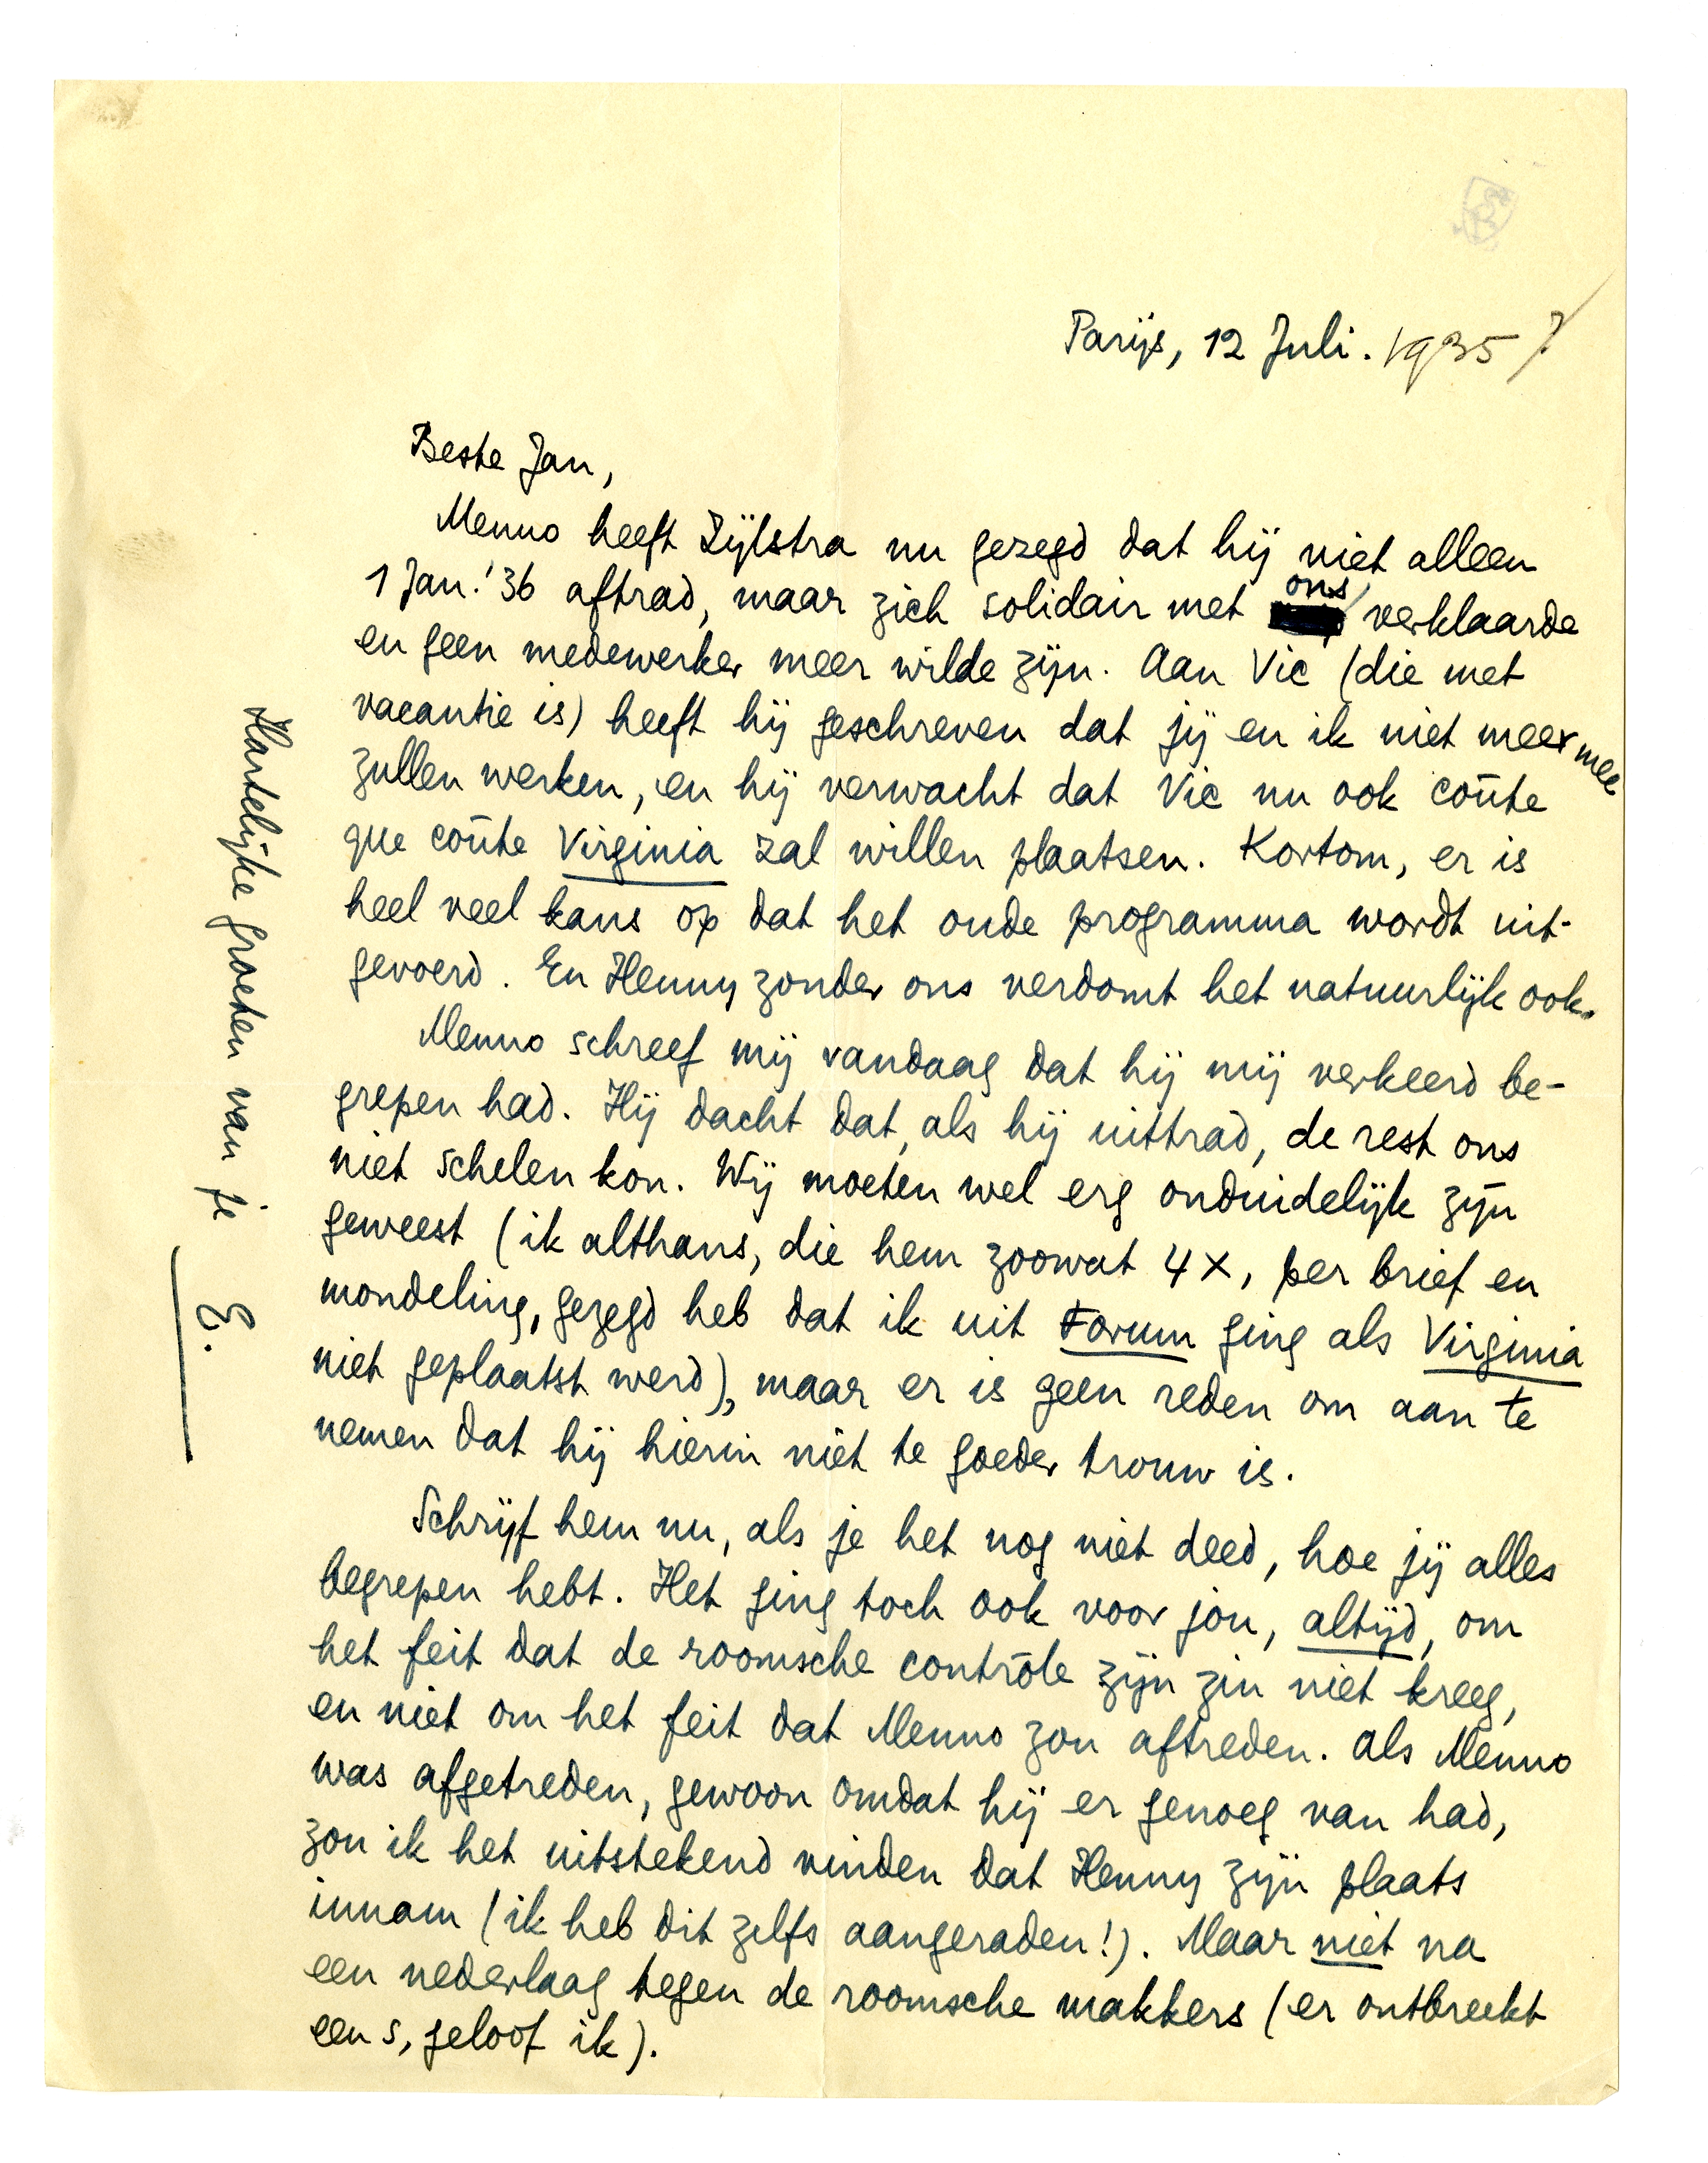 Parijs, 12 Juli. 1935?
Beste Jan,
Menno heeft Zijlstra nu gezegd dat hij niet alleen
1 Jan.'36 aftrad, maar zich solidair met ons verklaarde
en geen medewerker meer wilde zijn. Aan Vic (die met
vacantie is) heeft hij geschreven dat jij en ik niet meer mee
zullen werken, en hij verwacht dat Vic nu ook coûte
que coûte Virginia zal willen plaatsen. Kortom, er is
heel veel kans op dat het oude programma wordt uit-
gevoerd. En Henny zonder ons verdomt het natuurlijk ook.
Menno schreef mij vandaag dat hij mij verkeerd be-
grepen had. Hij dacht dat, als hij uittrad, de rest ons
niet schelen kon. Wij moeten wel erg onduidelijk zijn
geweest (ik althans, die hem zoowat 4 x, per brief en
mondeling, gezegd heb dat ik uit Forum ging als Virginia
niet geplaatst werd), maar er is geen reden om aan te
nemen dat hij hierin niet te goeder trouw is.
Schrijf hem nu, als je het nog niet deed, hoe jij alles
begrepen hebt. Het ging toch ook voor jou, altijd, om
het feit dat de roomsche contrôle zijn zin niet kreeg,
en niet om het feit dat Menno zou aftreden. Als Menno
was afgetreden, gewoon omdat hij er genoeg van had,
zou ik het uitstekend vinden dat Henny zijn plaats
innam (ik heb dit zelfs aangeraden!). Maar niet na
een nederlaag tegen de roomsche makkers (er ontbreekt
een s, geloof ik).
Hartelijke groeten van je
E.